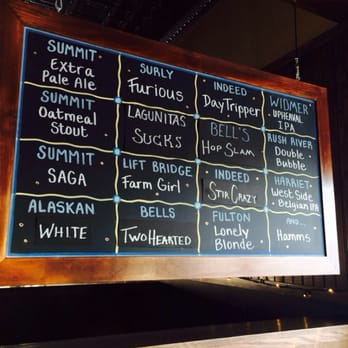 SUMMIT
EXtRA
PALE ALE
SURLY
FURIOUS
INDEED
DAYTRIPPER
WIDMER
UPHEAVAL
IPA
SUMMIT
OATMEAL
STOUT
LAGUNITAS
SUCKS
BELL'S
HOP SLAM
RUSH RIVER
DOUBLE
BUBBLE
SUMMIT
SAGA
LIFT BRIDGE
FARM GIRL
INDEED
STIR CRAZY
HARRIET
WEST SIDE
BELGIAN IPA
ALASKAN
WHITE
BELLS
TWO HEARTED
FULTON
LONELY
BLONDE
AND...
HAMMS